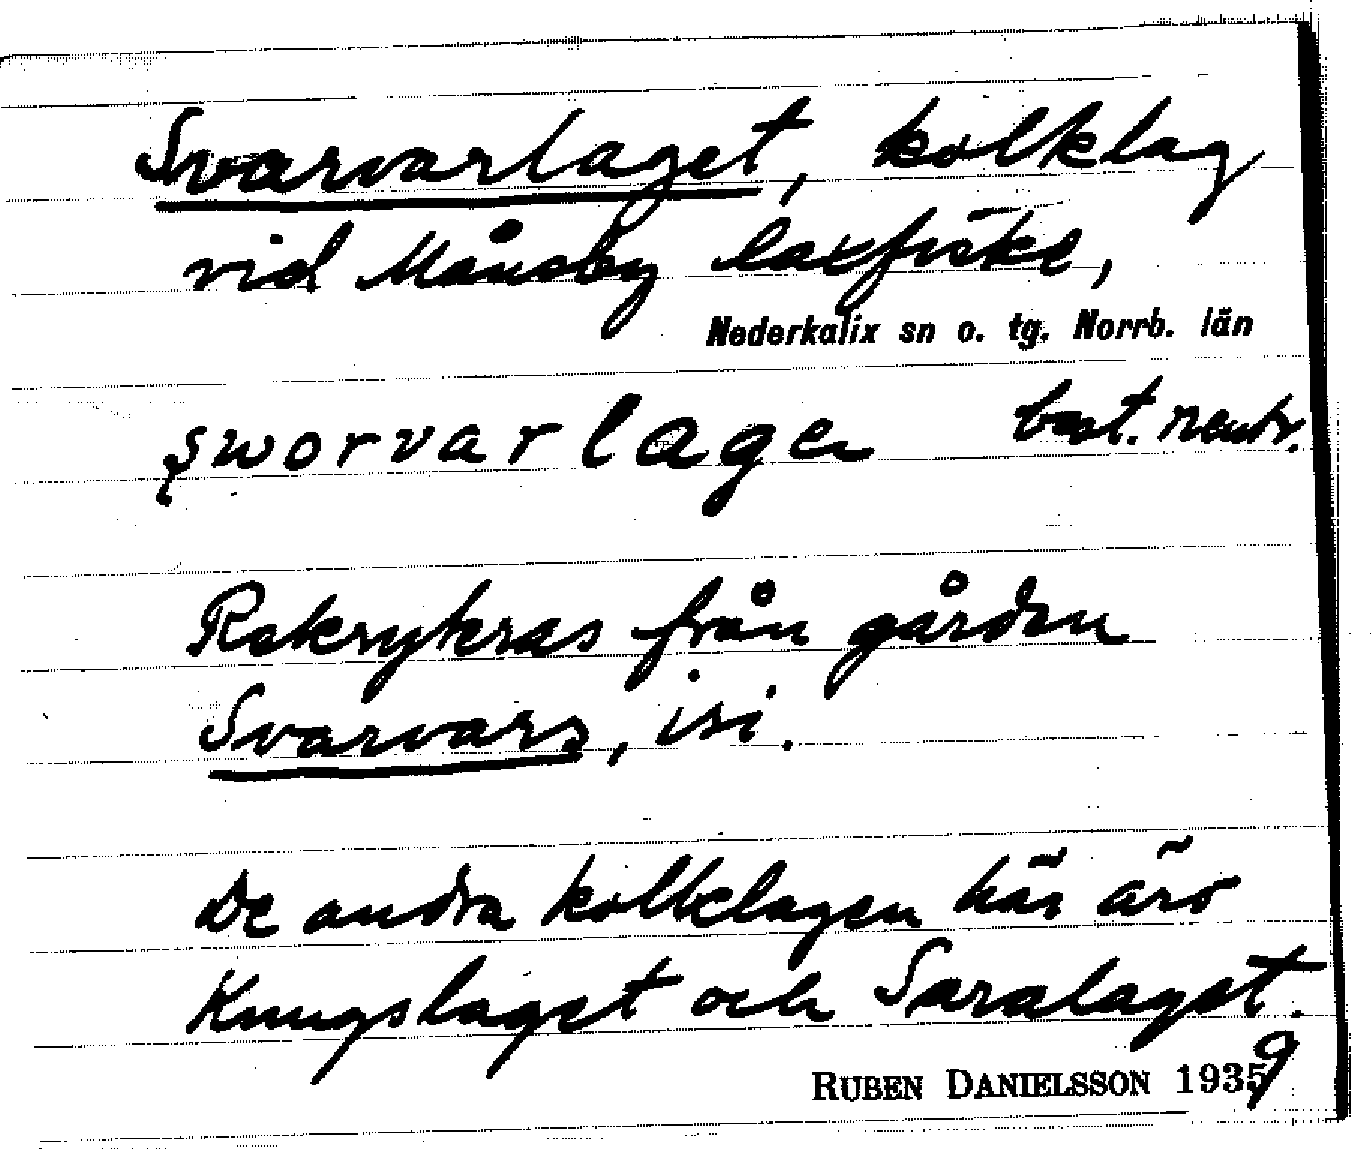 Svarvarlaget, kolklag
vid Månsby laxfiske,
Nederkalix sn o. tg. Norrb. län
şworvarlagen best. neutr.
Rekryteras från gården
Svarvars, isi.
De andra kolklagen här äro
Kungslaget och Saralaget.
RUBEN DANIELSSON 1939